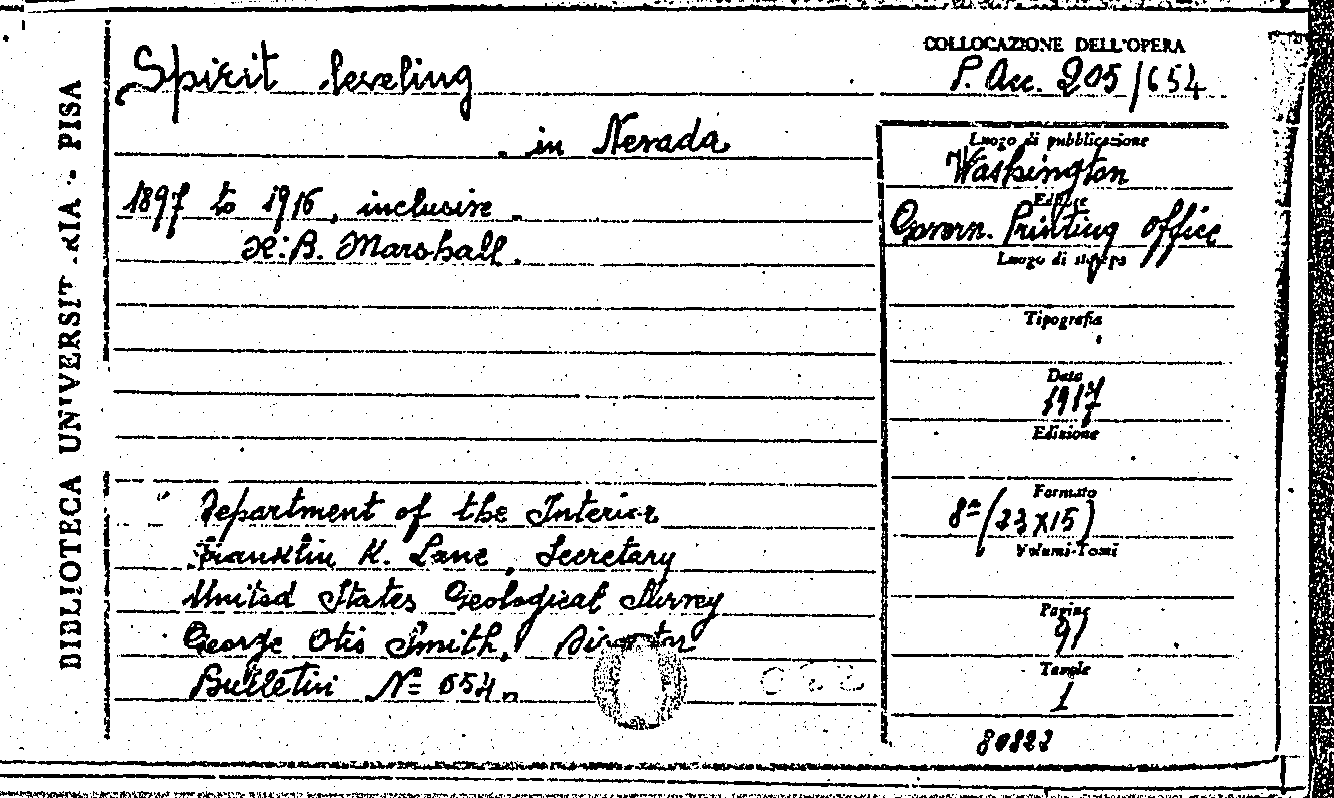 BIBLIOTECA UNIVERSITARIA - PISA
Spirit leveling
in Nevada
1897 to 1916, inclusive.
R. B. Marshall.
Department of the Interior
Franklin K. Lane, Secretary
United States Geological Survey
George Otis Smith, Director
Bulletin N= 654.
COLLOCAZIONE DELL'OPERA
P. Acc. 205/654
Luogo di pubblicazione
Washington
Editore
Govern. Printing office
Luogo di stampa
Tipografia
Data
1917
Edizione
Formato
8=/(23x15)
Volumi-Tomi
Pagine
91
Tavole
1
80823